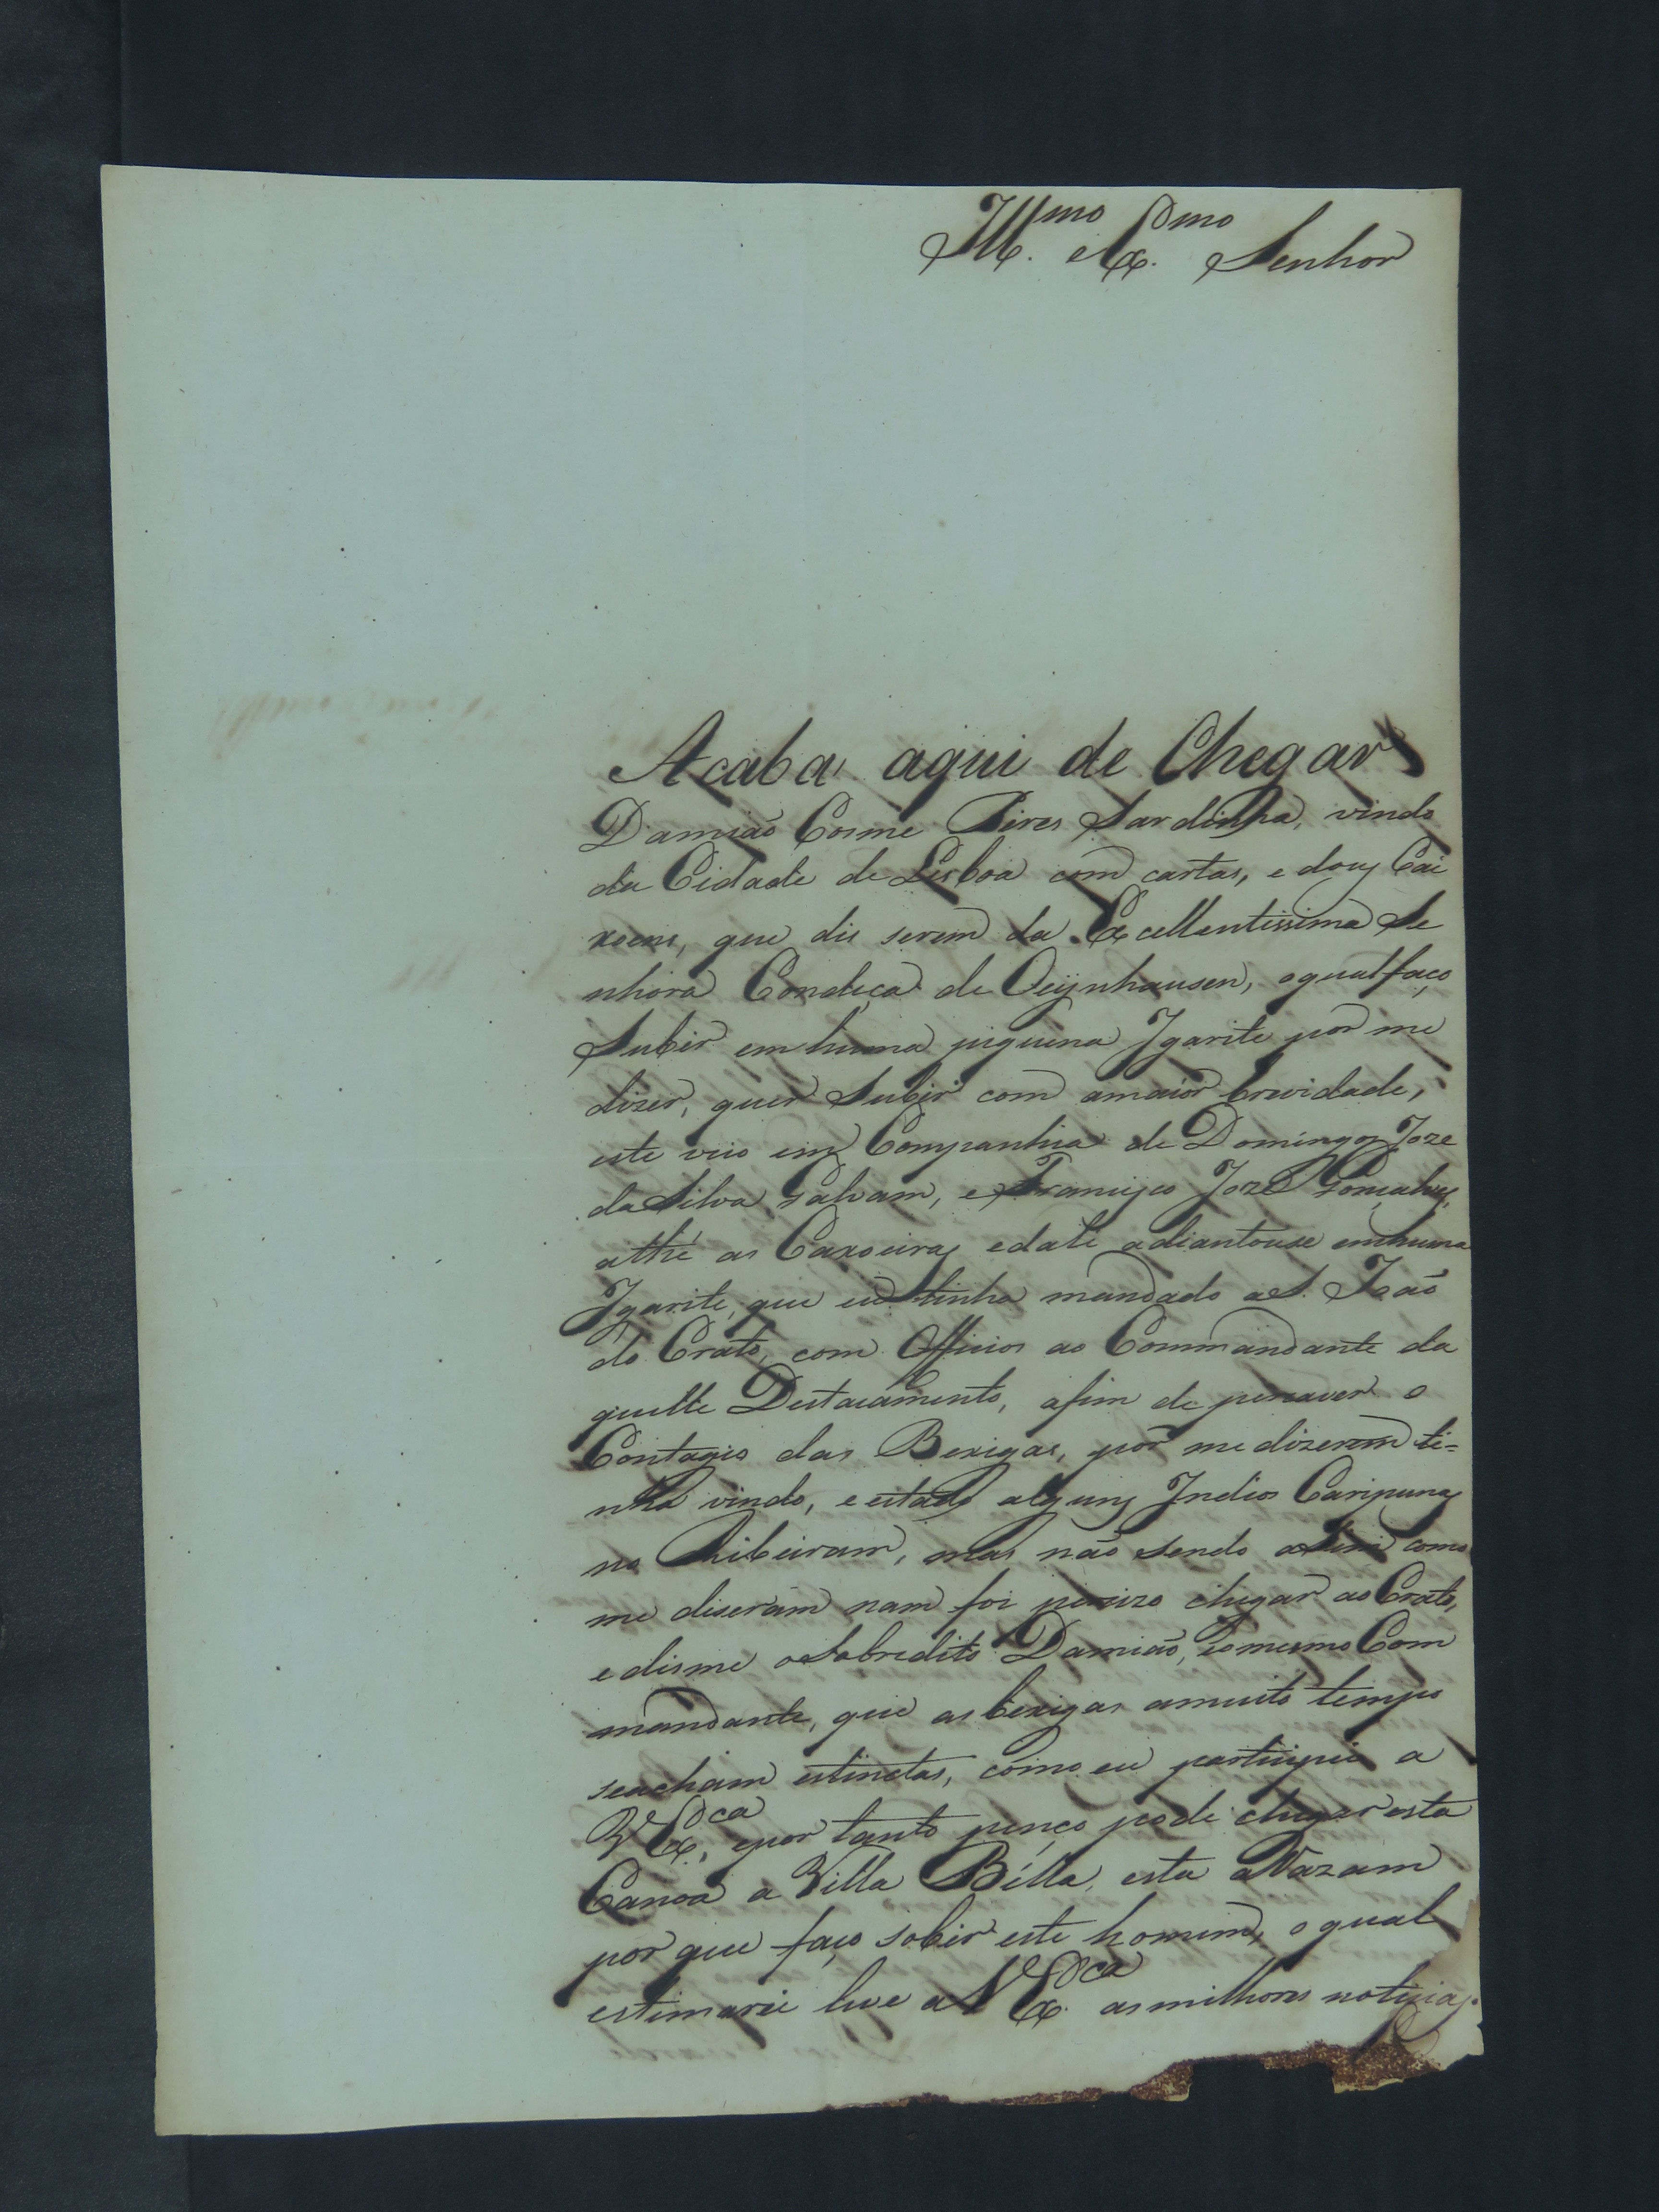 Ill.mo e Ex.mo Senhor
Acaba aqui de Chegar
Damiaõ Cosme Pires Sardinha, vindo
da Cidade de Lisboa com cartas, e douz Cai
xoens, que dis serem da Excellentissima Se
nhora Condeça de Oeijnhausen, o qual faço
Subir em huma piquena Jgarite por me
dizer, quer Subir com amaior brevidade,
este veio em Companhia de Domingos Joze
da Silva Galvam, e Francisco José Gonçalves,
athé as Caxoeiras edali adiantouse emhuma
Jgarite, que eu tinha mandado a S. Joaõ
do Crato, com Officios ao Commandante da
quelle Destacamento, afim de percaver o
Contagio das Bexigas, por me dizerem ti=
nha vindo, e estado alguns Indios Caripunas
no Ribeiram, mas naõ sendo assim como
me diseram nam foi percizo chegar ao Crato,
e disme o Sobredito Damiaõ, eomesmo Com
mandante, que as bexigas amuito tempo
seacham estinctas, como eu participei a
V.Ex.ca, epor tanto penço pode chegar esta
Canoa a Villa Bella, esta a Razam
por que faço sobir este homem, o qual
estimarei leve a V.Ex.ca as milhores noticias.